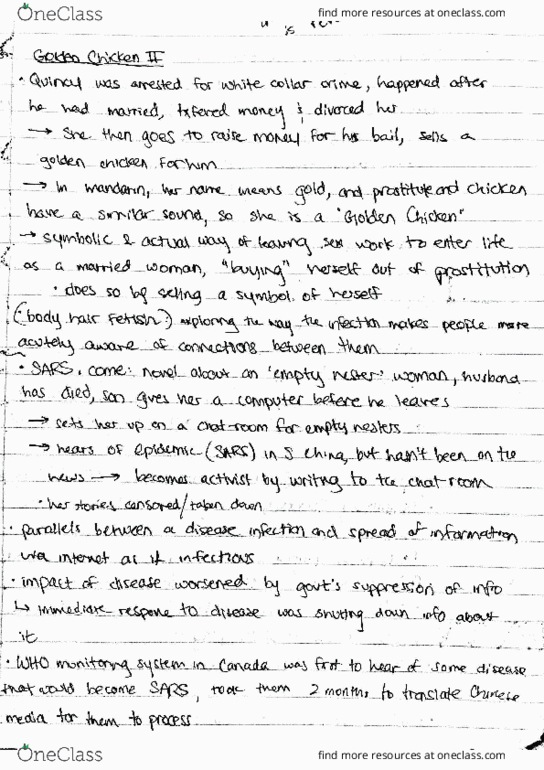 OneClass
find more resources at oneclass.com
is
Golden Chicken II
· Quincy was arrested for white collar crime, happened after
he had married, txfered money & divorced her
→ She then goes to raise money for his bail, sells a
golden chicken for him
→ In mandarin, her name means gold, and prostitute and chicken
have a similar sound, so she is a "Golden Chicken"
→ symbolic & actual way of leaving sex work to enter life
as a married woman, "buying" herself out of prostitution
· does so by selling a symbol of herself
(body hair fetish?) exploring the way the infection makes people more
acutely aware of connections between them
· SARS. come: novel about an 'empty nester' woman, husband
has died, son gives her a computer before he leaves
→ sets her up on a chat-room for empty nesters
→ hears of epidemic (SARS) in S China, but hasn't been on the
news → becomes activist by writing to the chat room
· her stories censored/taken down
· parallels between a disease infection and spread of information
via internet as if infectious
· impact of disease worsened by govt's suppression of info
↳ immediate response to disease was shuting down info about
it
· WHO monitoring system in Canada was first to hear of some disease
that would become SARS, took them 2 months to translate Chinese
media for them to process
OneClass
find more resources at oneclass.com